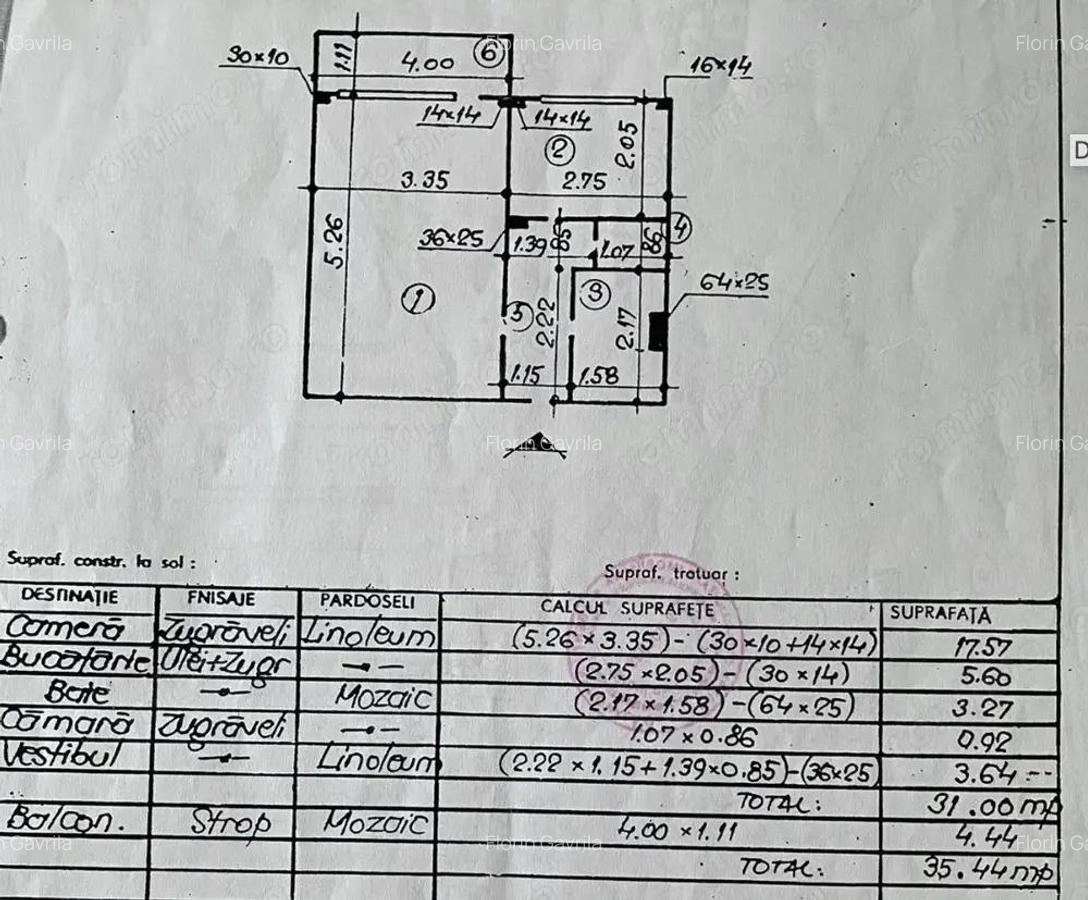 Florin Gavrila
Florin Gavrila
Florin Gavrila
1.11
6
30×10
4.00
16×14
14×14
14×14
2
2.05
3.35
2.75
5.26
36×25
1.39
85
1.07
86
4
64×25
1
3
5
2.22
2.17
1.15
1.58
Florin Gavrila
Florin Gavrila
Florin Gavrila
Supraf. constr. la sol :
Supraf. trotuar :
DESTINAȚIE FNISAJE PARDOSELI CALCUL SUPRAFEȚE SUPRAFAȚĂ
Cameră Zugrăveli Linoleum (5.26×3.35)-(30×10+14×14) 17.57
Bucătărie Ulei+Zugr —•— (2.75×2.05)-(30×14) 5.60
Baie —•— Mozaic (2.17×1.58)-(64×25) 3.27
Cămară Zugrăveli —•— 1.07×0.86 0.92
Vestibul —•— Linoleum (2.22×1.15+1.39×0.85)-(36×25) 3.64
TOTAL: 31.00 mp
Balcon. Strop Mozaic 4.00×1.11 4.44
Florin Gavrila
Florin Gavrila
Florin Gavrila
TOTAL: 35.44 mp